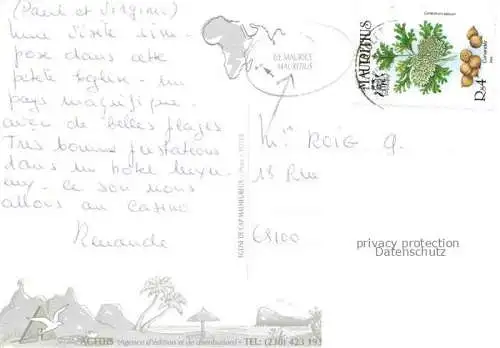 (Paul et Virginie)
Une visite s'im-
pose dans cette
petite église - un
pays magnifique
avec de belles plages
Très bonnes prestations
dans un hôtel luxu-
eux - ce soir nous
allons au casino
ILE MAURICE
MAURITIUS
MAURITIUS
Coriander
Rs4
ROIG G.
18 Rue
68100
EGLISE DE CAP MALHEUREUX
privacy protection
Datenschutz
(Agence d'édition et de distribution) • TEL: (230) 423 193